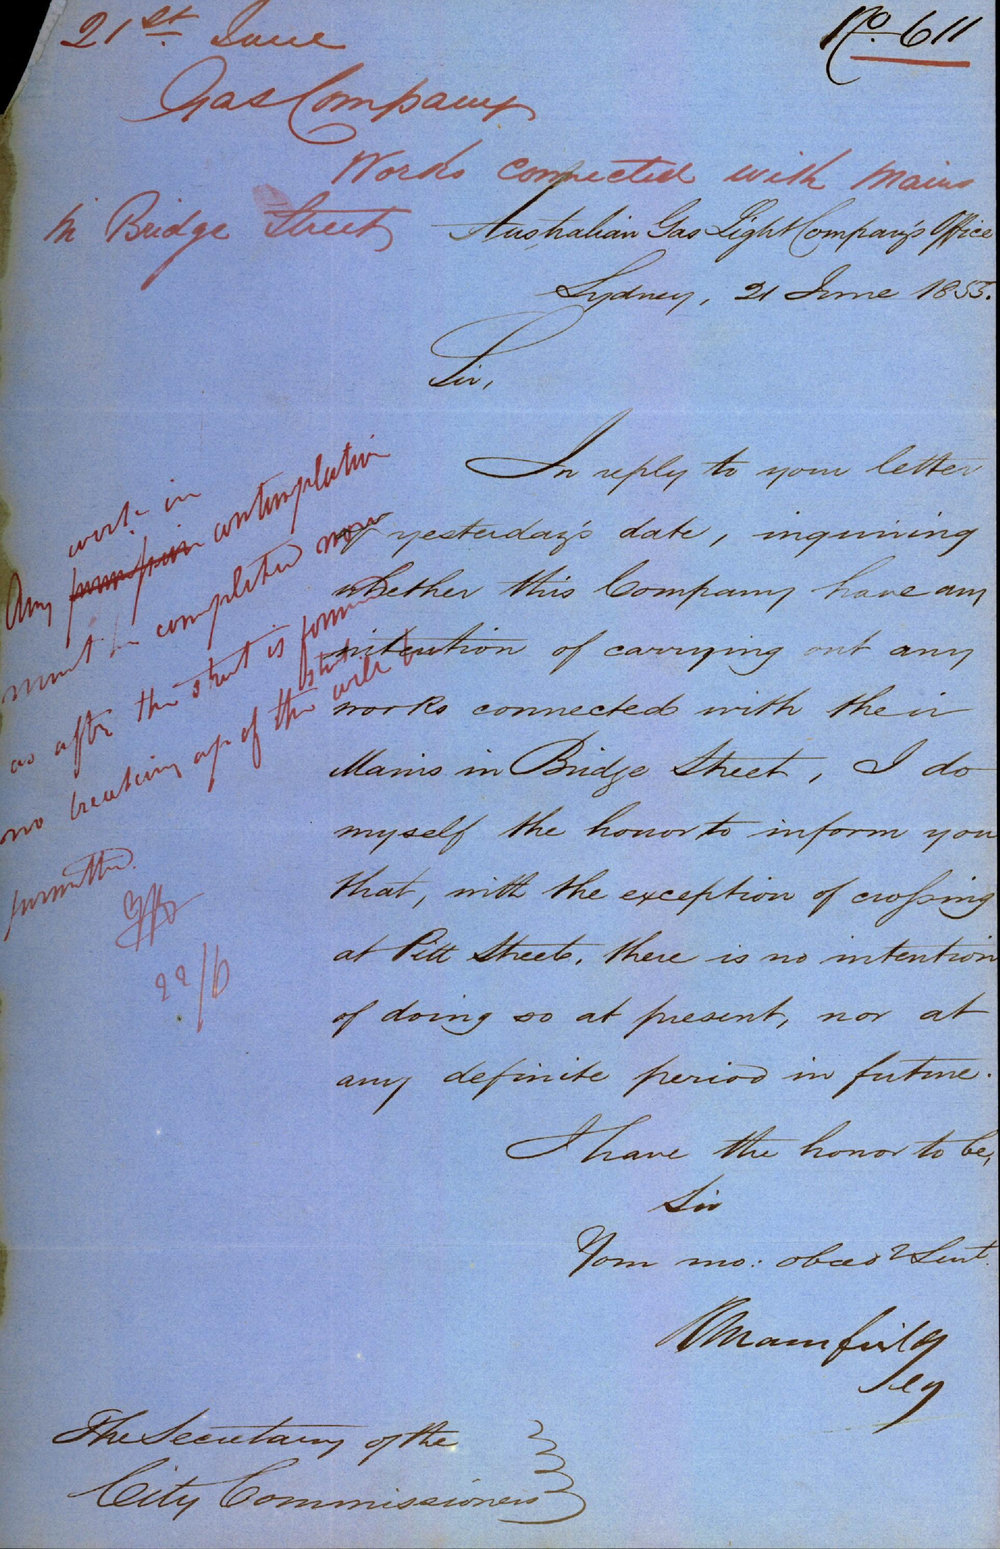 21st. June
No. 611
Gas Company
Works connected with Mains
in Bridge Street
Australian Gas Light Company's Office
Sydney, 21 June 1855.
Sir,
In reply to your letter
of yesterday's date, inquiring
whether this Company have any
intention of carrying out any
works connected with their
Mains in Bridge Street, I do
myself the honor to inform you
that, with the exception of crossing
at Pitt Street, there is no intention
of doing so at present, nor at
any definite period in future.
I have the honor to be,
Sir
Your mo: obed Servt.
Secy
The Secretary of the
City Commissioners
work in
Any contemplation
must be completed now
as after the street is formed
no breaking up of the street will be
permitted.
22/6